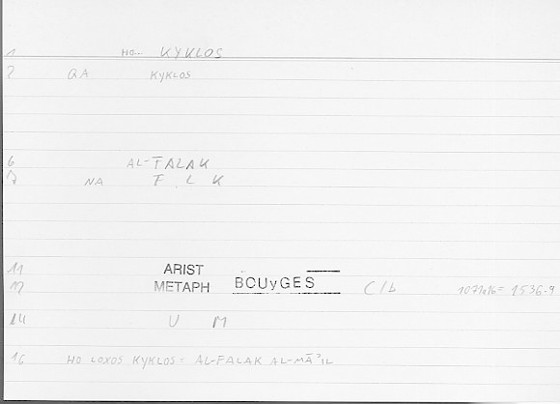 1 HO- KYKLOS
2 QA KYKLOS
6 AL-FALAK
7 NA F L K
11 ARIST
12 METAPH BOUyGES C/b = 1536.9
14 U M
16 HO LOXOS KYKLOS= AL-FALAK AL-MĀʾIL